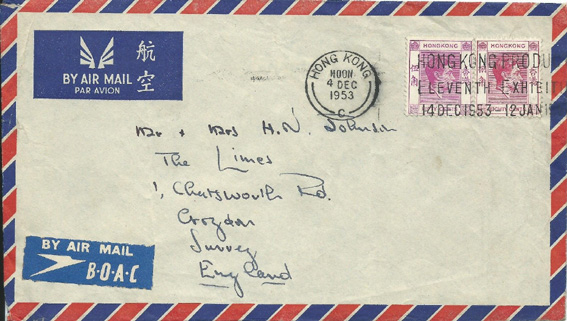 BY AIR MAIL
PAR AVION
航空
HONG KONG
NOON
4 DEC
1953
C
HONG KONG HONG KONG
HONG KONG PRODU
ELEVENTH EXHIBIT
14 DEC 1953 12 JAN
Mr + Mrs H.N. Johnson
The Limes
1, Chatsworth Rd.
Croydon
Surrey
England
BY AIR MAIL
B·O·A·C